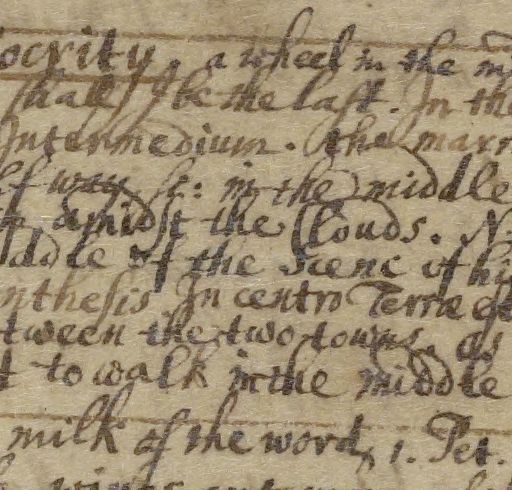 ocrity, a wheel in the
shall be the last. In the
Intermedium. the marr
lf way st: in the middle
amidst the Clouds. N
ddle of the Scene of hi
nthesis In centro Terræ est
tween the two towns, as
t to walk in the middle
milk of the word, 1. Pet.